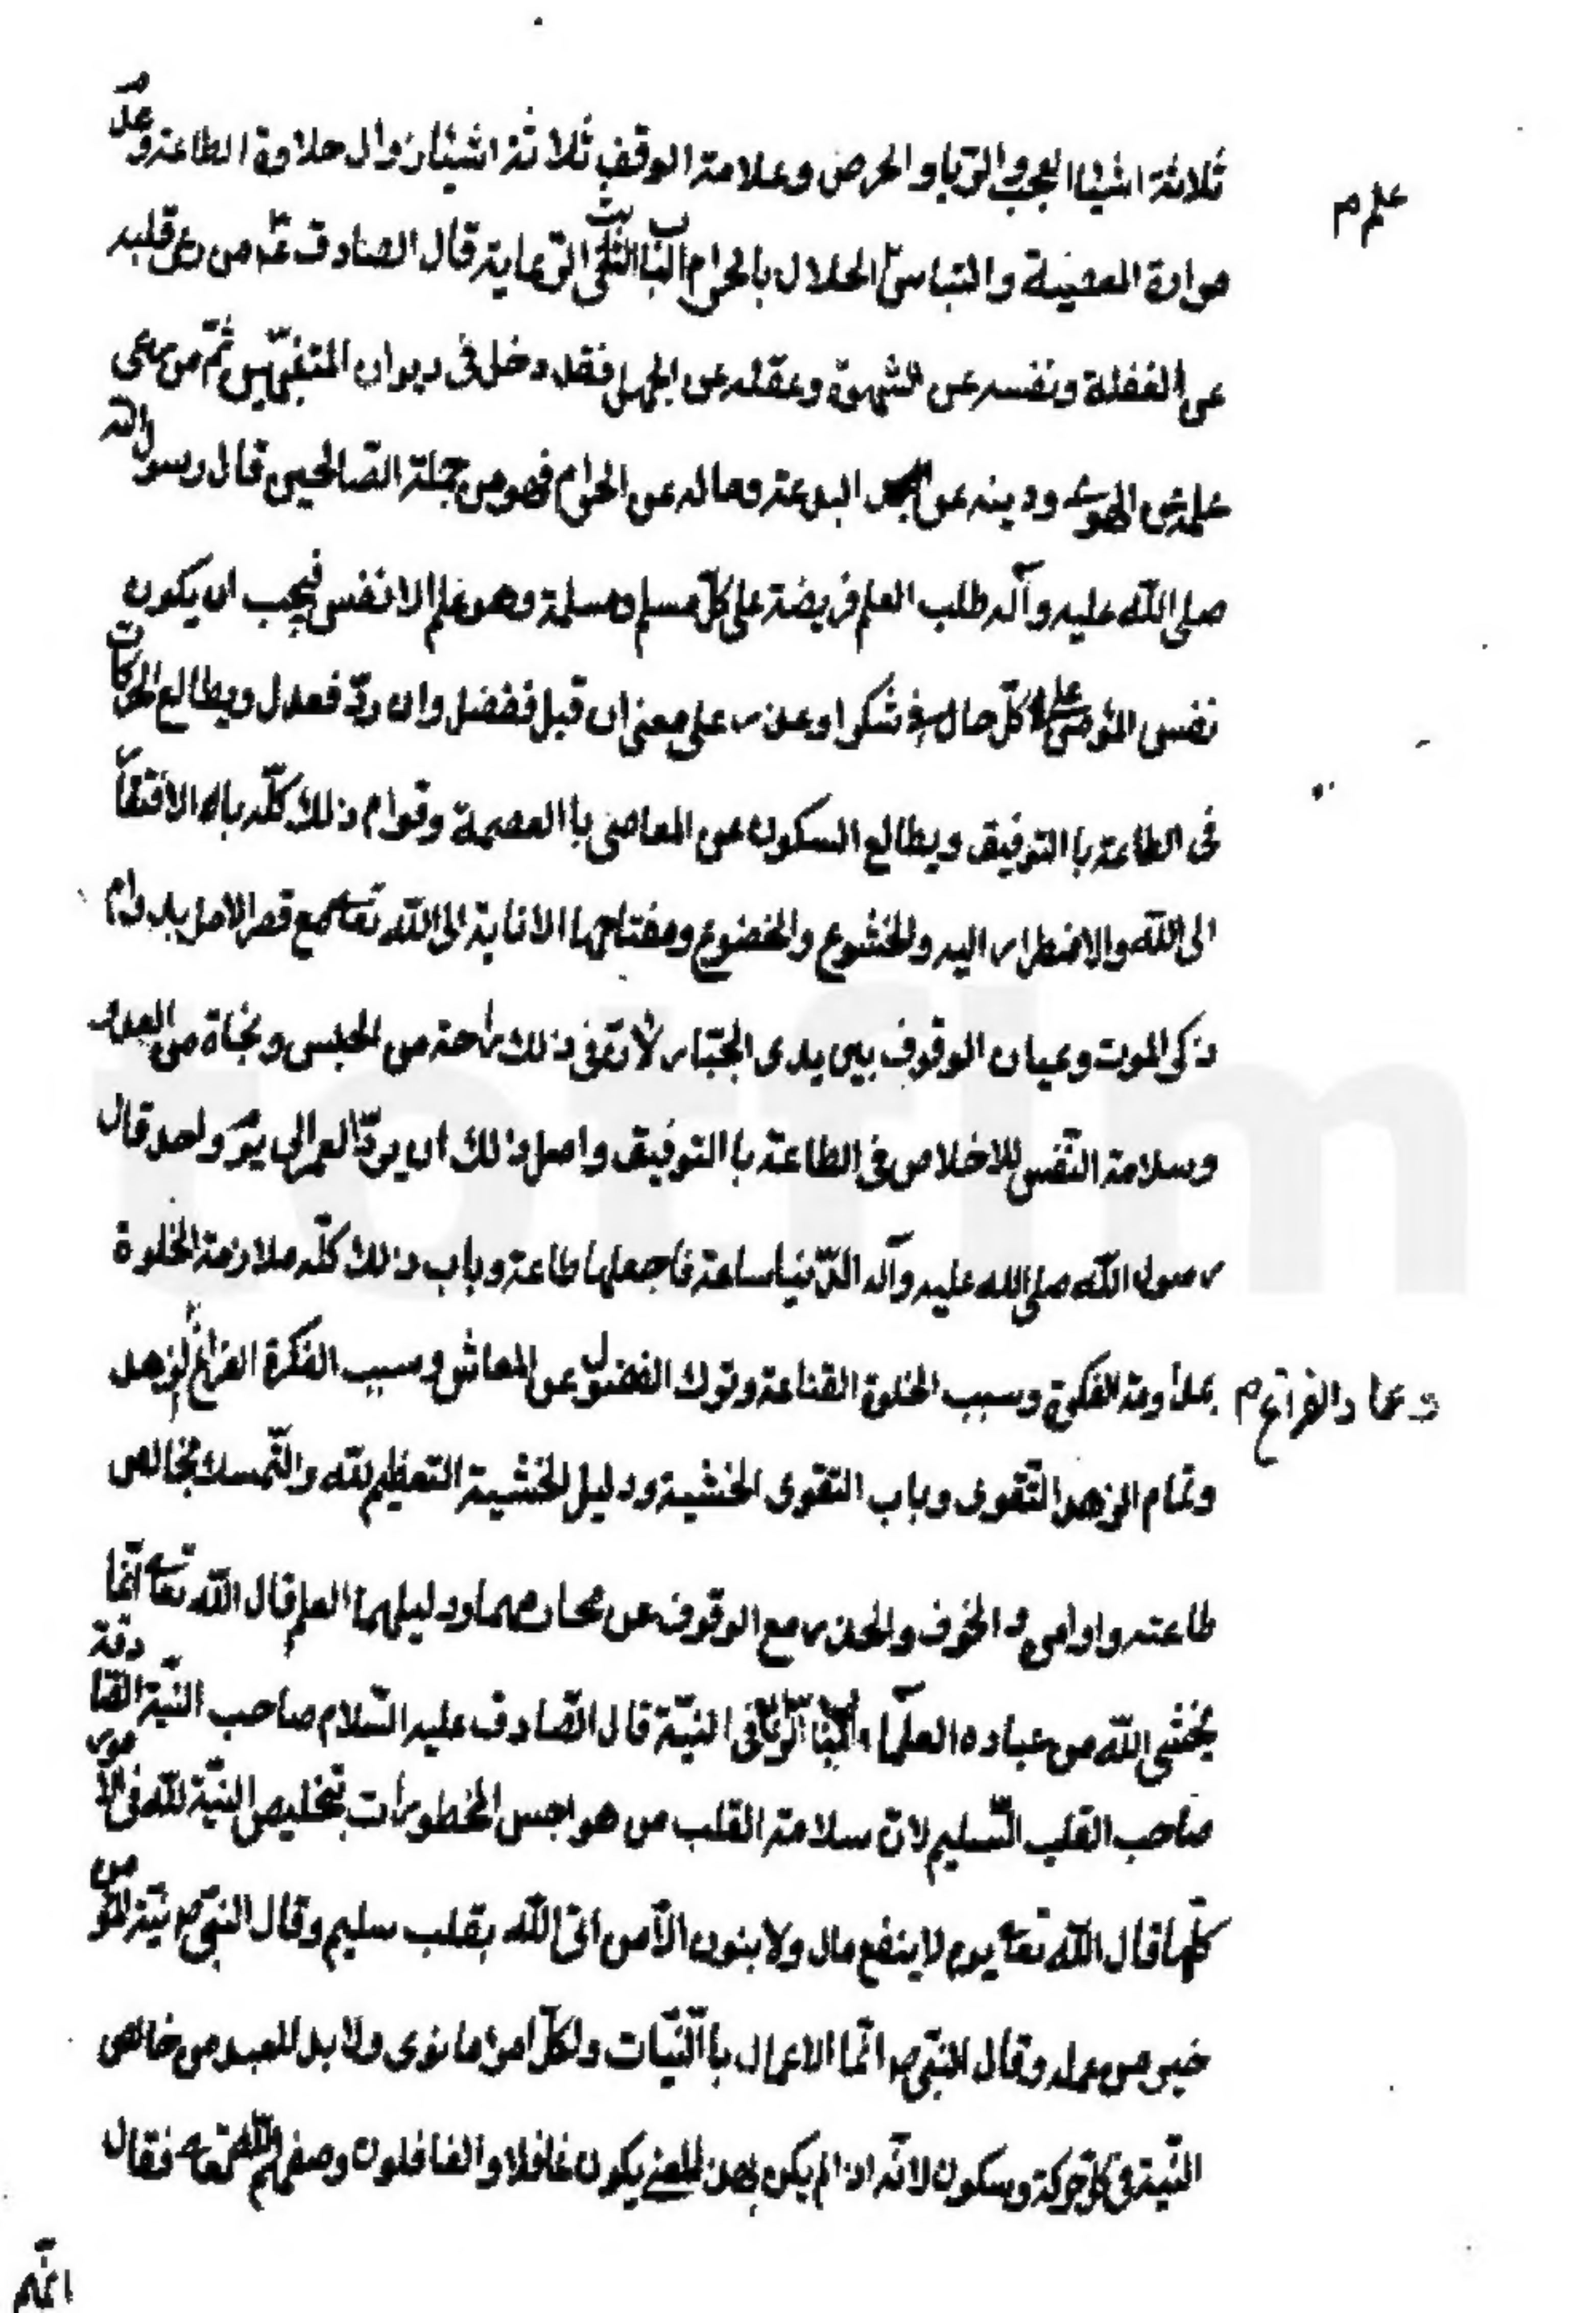 ثلاثة اشياء العجب والريا والحرص وعلامة الوقف ثلاثة اشياء زوال حلاوة الطاعة وعدم
علم م
مرارة المعصية والتباس الحلال بالحرام الباب الثالث الرعاية قال الصادق ع من رعى قلبه
عن الغفلة ونفسه عن الشهوة وعقله عن الجهل فقد دخل في ديوان المتنبهين ثم من رعى
علمه عن الهوى ودينه عن البدعة وماله عن الحرام فهو من جملة الصالحين قال رسول الله
صلى الله عليه وآله طلب العلم فريضة على كل مسلم ومسلمة وهو علم الانفس فيجب ان يكون
نفس المؤمن على كل حال في شكر او عذر على معنى ان قبل ففضل وان رد فعدل ويطالع الحركات
فى الطاعة باالتوفيق ويطالع السكون عن المعاصى باالعصمة وقوام ذلك كله باه الافتقار
الى الله والاضطرار اليه والخشوع والخضوع ومفتاحها الانابة الى الله تعا مع قصر الامل بدوام
ذكر الموت وعيان الوقوف بين يدى الجبار لان فى ذلك راحة من الحبس ونجاة من العدو
وسلامة النفس للاخلاص فى الطاعة باالتوفيق واصل ذلك ان يرد العمر الى يوم واحد قال
رسول الله صلى الله عليه وآله الدنيا ساعة فاجعلها طاعة وباب ذلك كله ملازمة الخلوة
بمداومة الفكرة وسبب الخلوة القناعة وترك الفضول عن المعاش وسبب الفكرة الفراغ الزهد
وعماد الفراغ م
وتمام الزهد التقوى وباب التقوى الخشية ودليل الخشية التعظيم لله والتمسك بخالص
طاعته واوامره والخوف والحذر مع الوقوف عن محارمه ودليلهما العلم قال الله تعا انما
يخشى الله من عباده العلماء الباب الرابع فى النية قال الصادق عليه السلام صاحب النية الصادقة
صاحب القلب السليم لان سلامة القلب من هواجس المخطورات بتخليص النية لله فى الامور
كلها قال الله تعا يوم لا ينفع مال ولا بنون الا من اتى الله بقلب سليم وقال النبى ص نية المؤمن
خير من عمله وقال النبى ص انما الاعمال باالنيات ولكل امرء ما نوى ولا بد للعبد من خالص
النية فى كل حركة وسكون لانه اذا لم يكن بهذا المعنى يكون غافلا والغافلون وصفهم الله تعا فقال
انهم